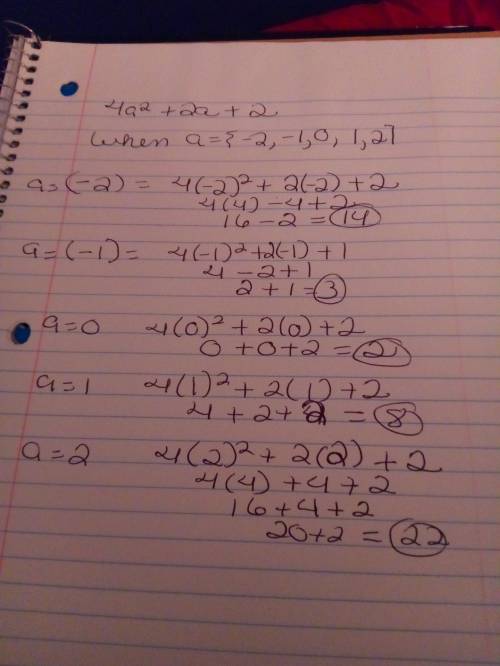 4a² + 2a + 2
when a = {-2, -1, 0, 1, 2]
a = (-2) = 4(-2)² + 2(-2) + 2
4(4) - 4 + 2
16 - 2 = 14
a = (-1) = 4(-1)² + 2(-1) + 1
4 - 2 + 1
2 + 1 = 3
a = 0 4(0)² + 2(0) + 2
0 + 0 + 2 = 2
a = 1 4(1)² + 2(1) + 2
4 + 2 + 2 = 8
a = 2 4(2)² + 2(2) + 2
4(4) + 4 + 2
16 + 4 + 2
20 + 2 = 22